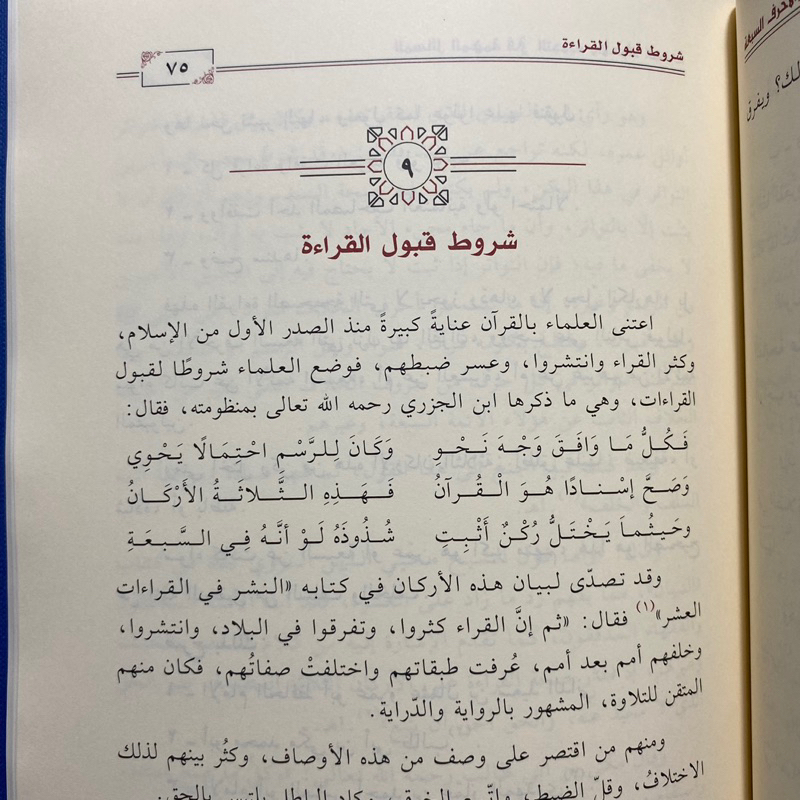 شروط قبول القراءة
٧٥
٩
شروط قبول القراءة
اعتنى العلماء بالقرآن عنايةً كبيرةً منذ الصدر الأول من الإسلام،
وكثر القراء وانتشروا، وعسر ضبطهم، فوضع العلماء شروطًا لقبول
القراءات، وهي ما ذكرها ابن الجزري رحمه الله تعالى بمنظومته، فقال:
فَكُلُّ مَا وَافَقَ وَجْهَ نَحْوِ وَكَانَ لِلرَّسْمِ احْتِمَالًا يَحْوِي
وَصَحَّ إسْنادًا هُوَ الْقُرآنُ فَهَذِهِ الثَّلاثَةُ الأَرْكَانُ
وحَيثُماَ يَخْتَلُّ رُكْنٌ أَثْبِتِ شُذُوذَهُ لَوْ أنَّهُ فِي السَّبعَةِ
وقد تصدّى لبيان هذه الأركان في كتابه «النشر في القراءات
العشر»(١) فقال: «ثم إنَّ القراء كثروا، وتفرقوا في البلاد، وانتشروا،
وخلفهم أمم بعد أمم، عُرفت طبقاتهم واختلفتْ صفاتُهم، فكان منهم
المتقن للتلاوة، المشهور بالرواية والدّراية.
ومنهم من اقتصر على وصف من هذه الأوصاف، وكثُر بينهم لذلك
الاختلافُ، وقلّ الضبط، واتّسع الخرق، وكاد الباطل يلتبس بالحق.
لك؟ ويفرق